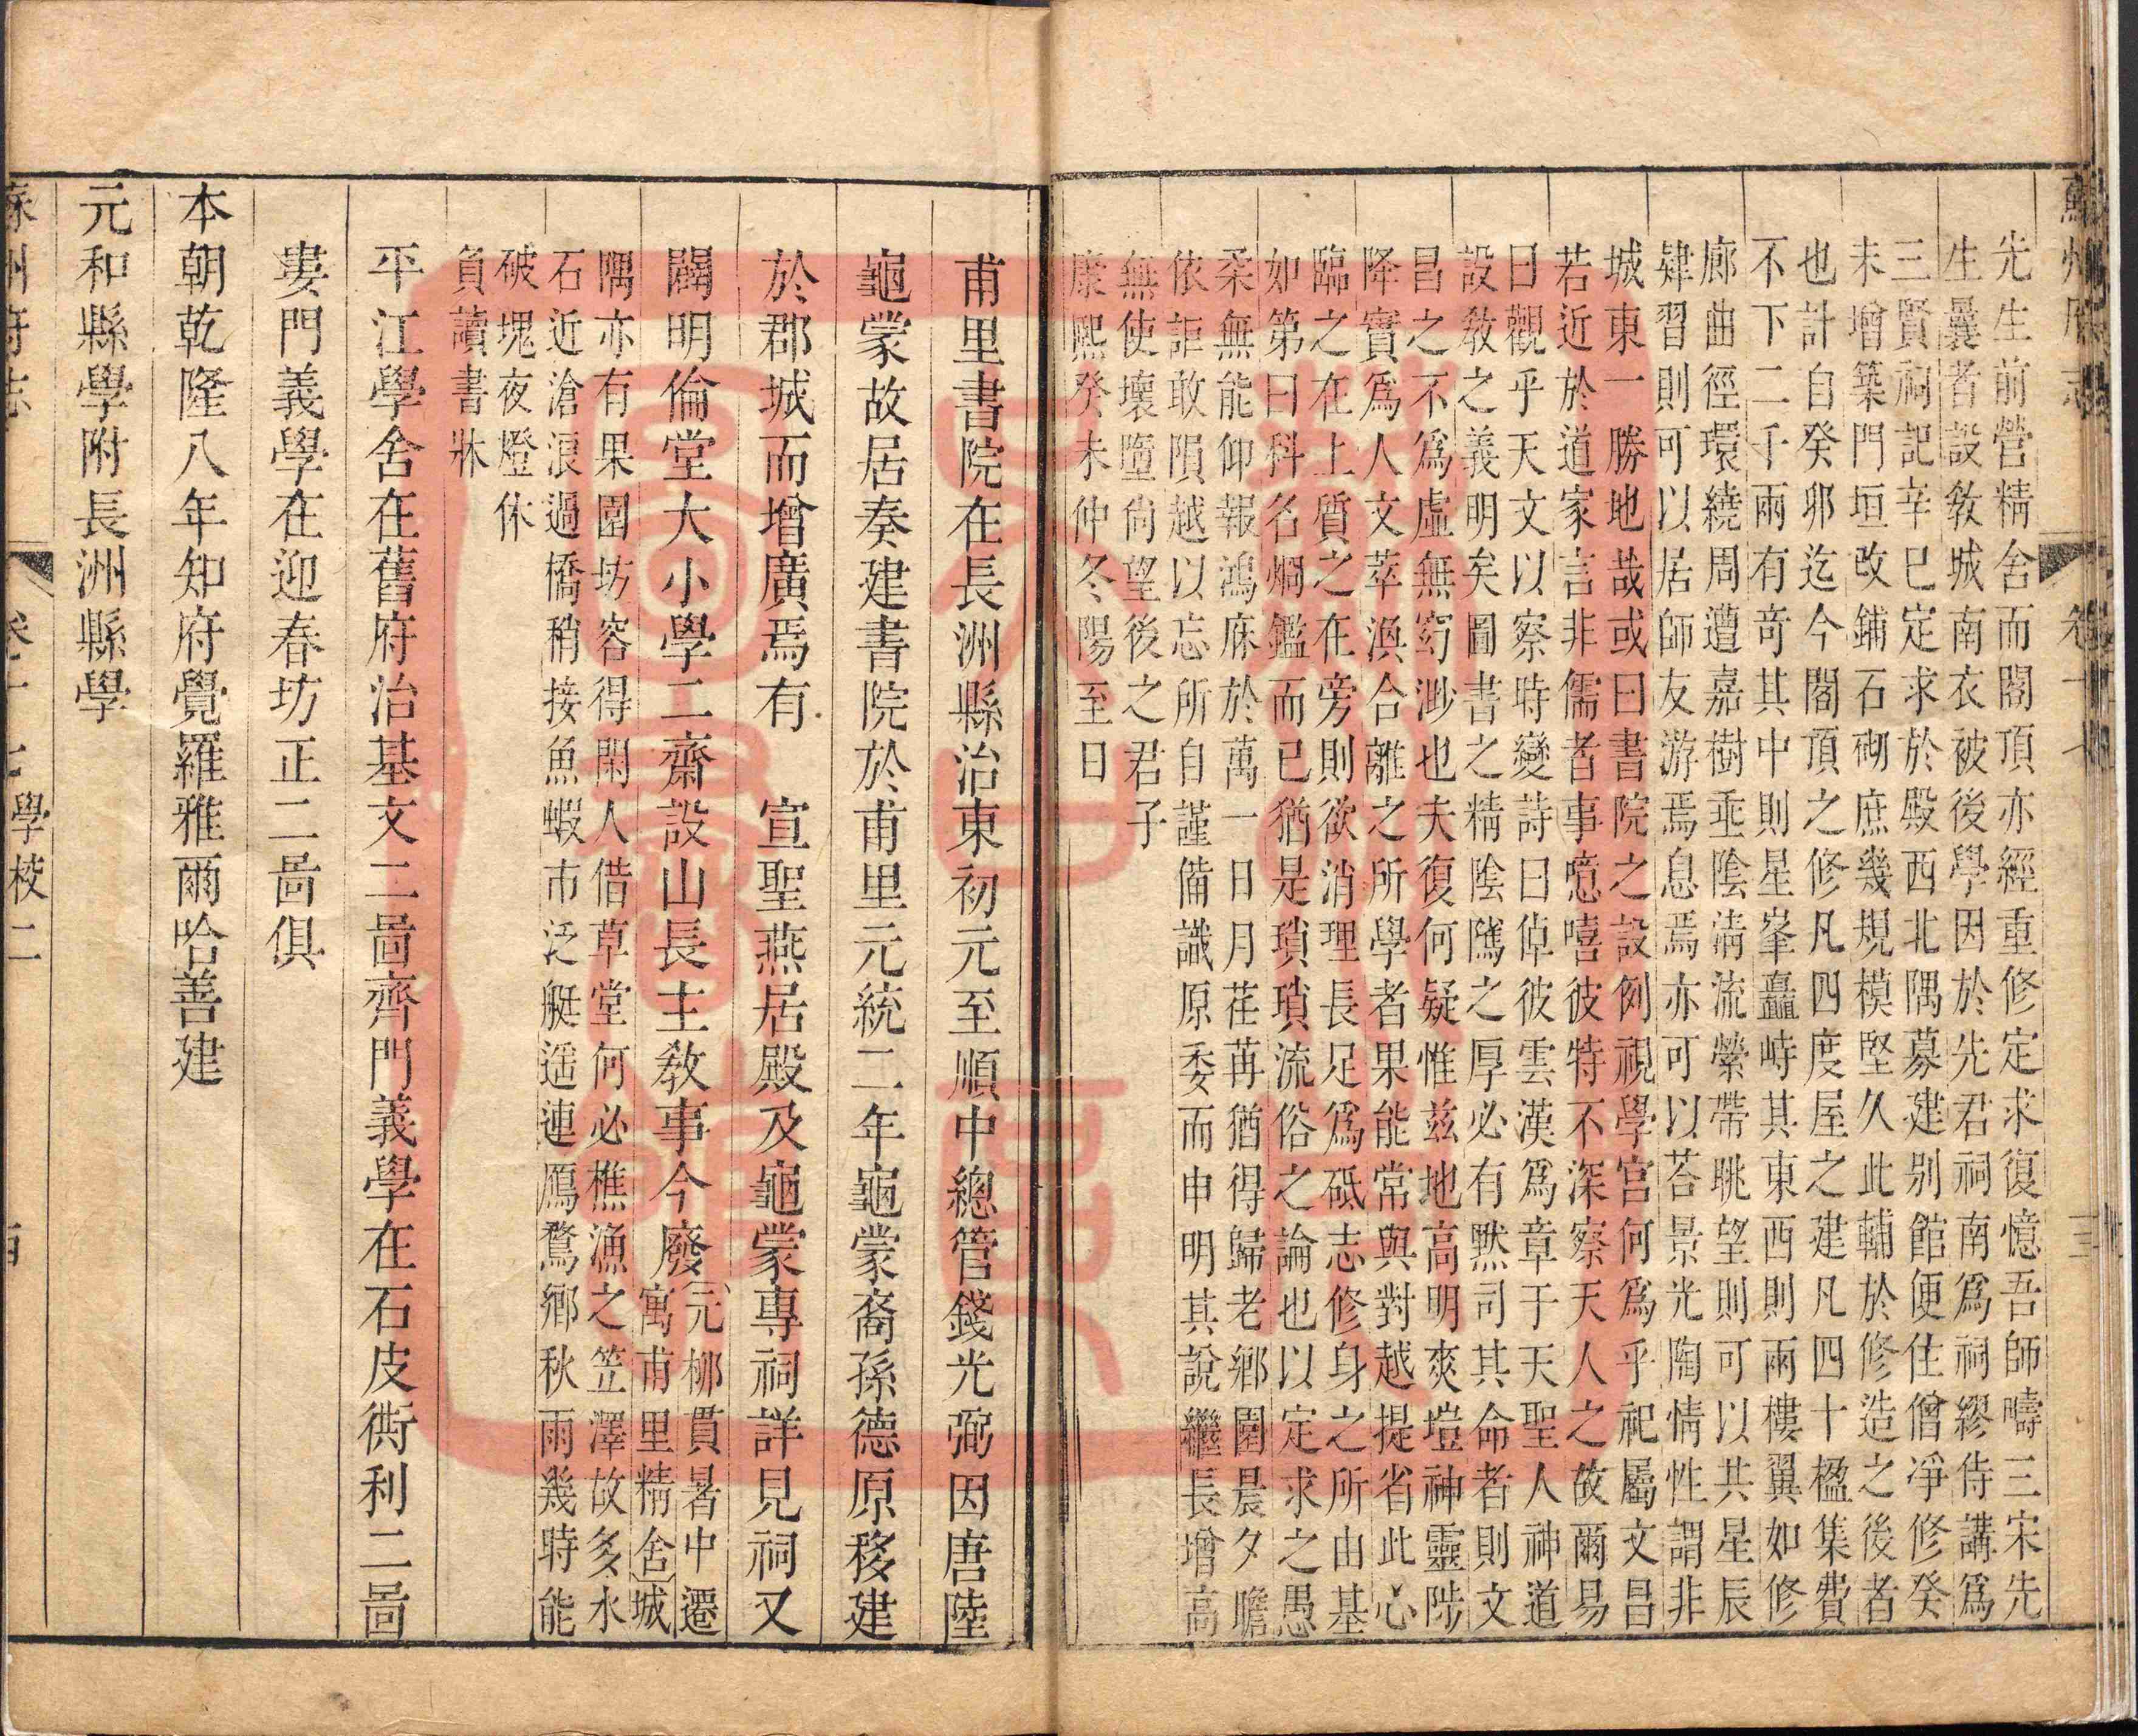 蘇州府志
卷十七
先生前營精舍而閣頂亦經重修定求復憶吾師疇三宋先
生曩者設敎城南衣被後學因於先君祠南爲祠繆侍講爲
三賢祠記辛巳定求於殿西北隅募建别館便住僧凈修癸
未增築門垣改鋪石砌庶幾規模堅久此輔於修造之後者
也計自癸卯迄今閣頂之修凡四度屋之建凡四十楹集費
不下二千兩有奇其中則星峯矗峙其東西則兩樓翼如修
廊曲徑環繞周遭嘉樹垂陰清流縈帶眺望則可以共星辰
肄習則可以居師友游焉息焉亦可以荅景光陶情性謂非
城東一勝地哉或曰書院之設例視學宫何爲乎祀屬文昌
若近於道家言非儒者事噫嘻彼特不深察天人之故爾易
曰觀乎天文以察時變詩曰倬彼雲漢爲章于天聖人神道
設敎之義明矣圖書之精陰隲之厚必有默司其命者則文
昌之不爲虛無窈渺也夫復何疑惟兹地高明爽塏神靈陟
降實爲人文萃渙合離之所學者果能常與對越提省此心
臨之在上質之在旁則欲消理長足爲砥志修身之所由基
如第曰科名烱鑑而已猶是瑣瑣流俗之論也以定求之愚
柔無能仰報鴻庥於萬一日月荏苒猶得歸老鄉園晨夕瞻
依詎敢隕越以忘所自謹備識原委而申明其說繼長增高
無使壞墮尙望後之君子
康熙癸未仲冬陽至日
甫里書院在長洲縣治東初元至順中總管錢光弼因唐陸
龜蒙故居奏建書院於甫里元統二年龜蒙裔孫德原移建
於郡城而增廣焉有　宣聖燕居殿及龜蒙專祠詳見祠又
闢明倫堂大小學二齋設山長主敎事今廢
元柳貫暑中遷
寓甫里精舍城
隅亦有果園坊容得閑人借草堂何必樵漁之笠澤故多水
石近滄浪過橋稍接魚蝦市泛艇遥連鴈鶩鄉秋雨幾時能
破塊夜燈休
負讀書牀
平江學舍在舊府治基文二啚齊門義學在石皮衖利二啚
婁門義學在迎春坊正二啚俱
本朝乾隆八年知府覺羅雅爾哈善建
元和縣學附長洲縣學
蘇州府志
學校二